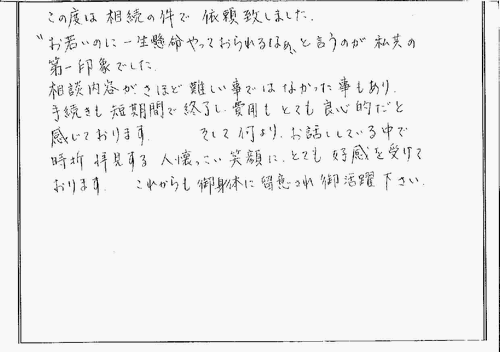 この度は相続の件で依頼致しました。
"お若いのに一生懸命やっておられるなぁ、と言うのが私共の
第一印象でした。
相談内容がさほど難しい事ではなかった事もあり、
手続きも短期間で終了し、費用もとても良心的だと
感じております。 そして何より、お話ししている中で
時折拝見する人懐っこい笑顔に、とても好感を受けて
おります。 これからも御身体に留意され御活躍下さい。